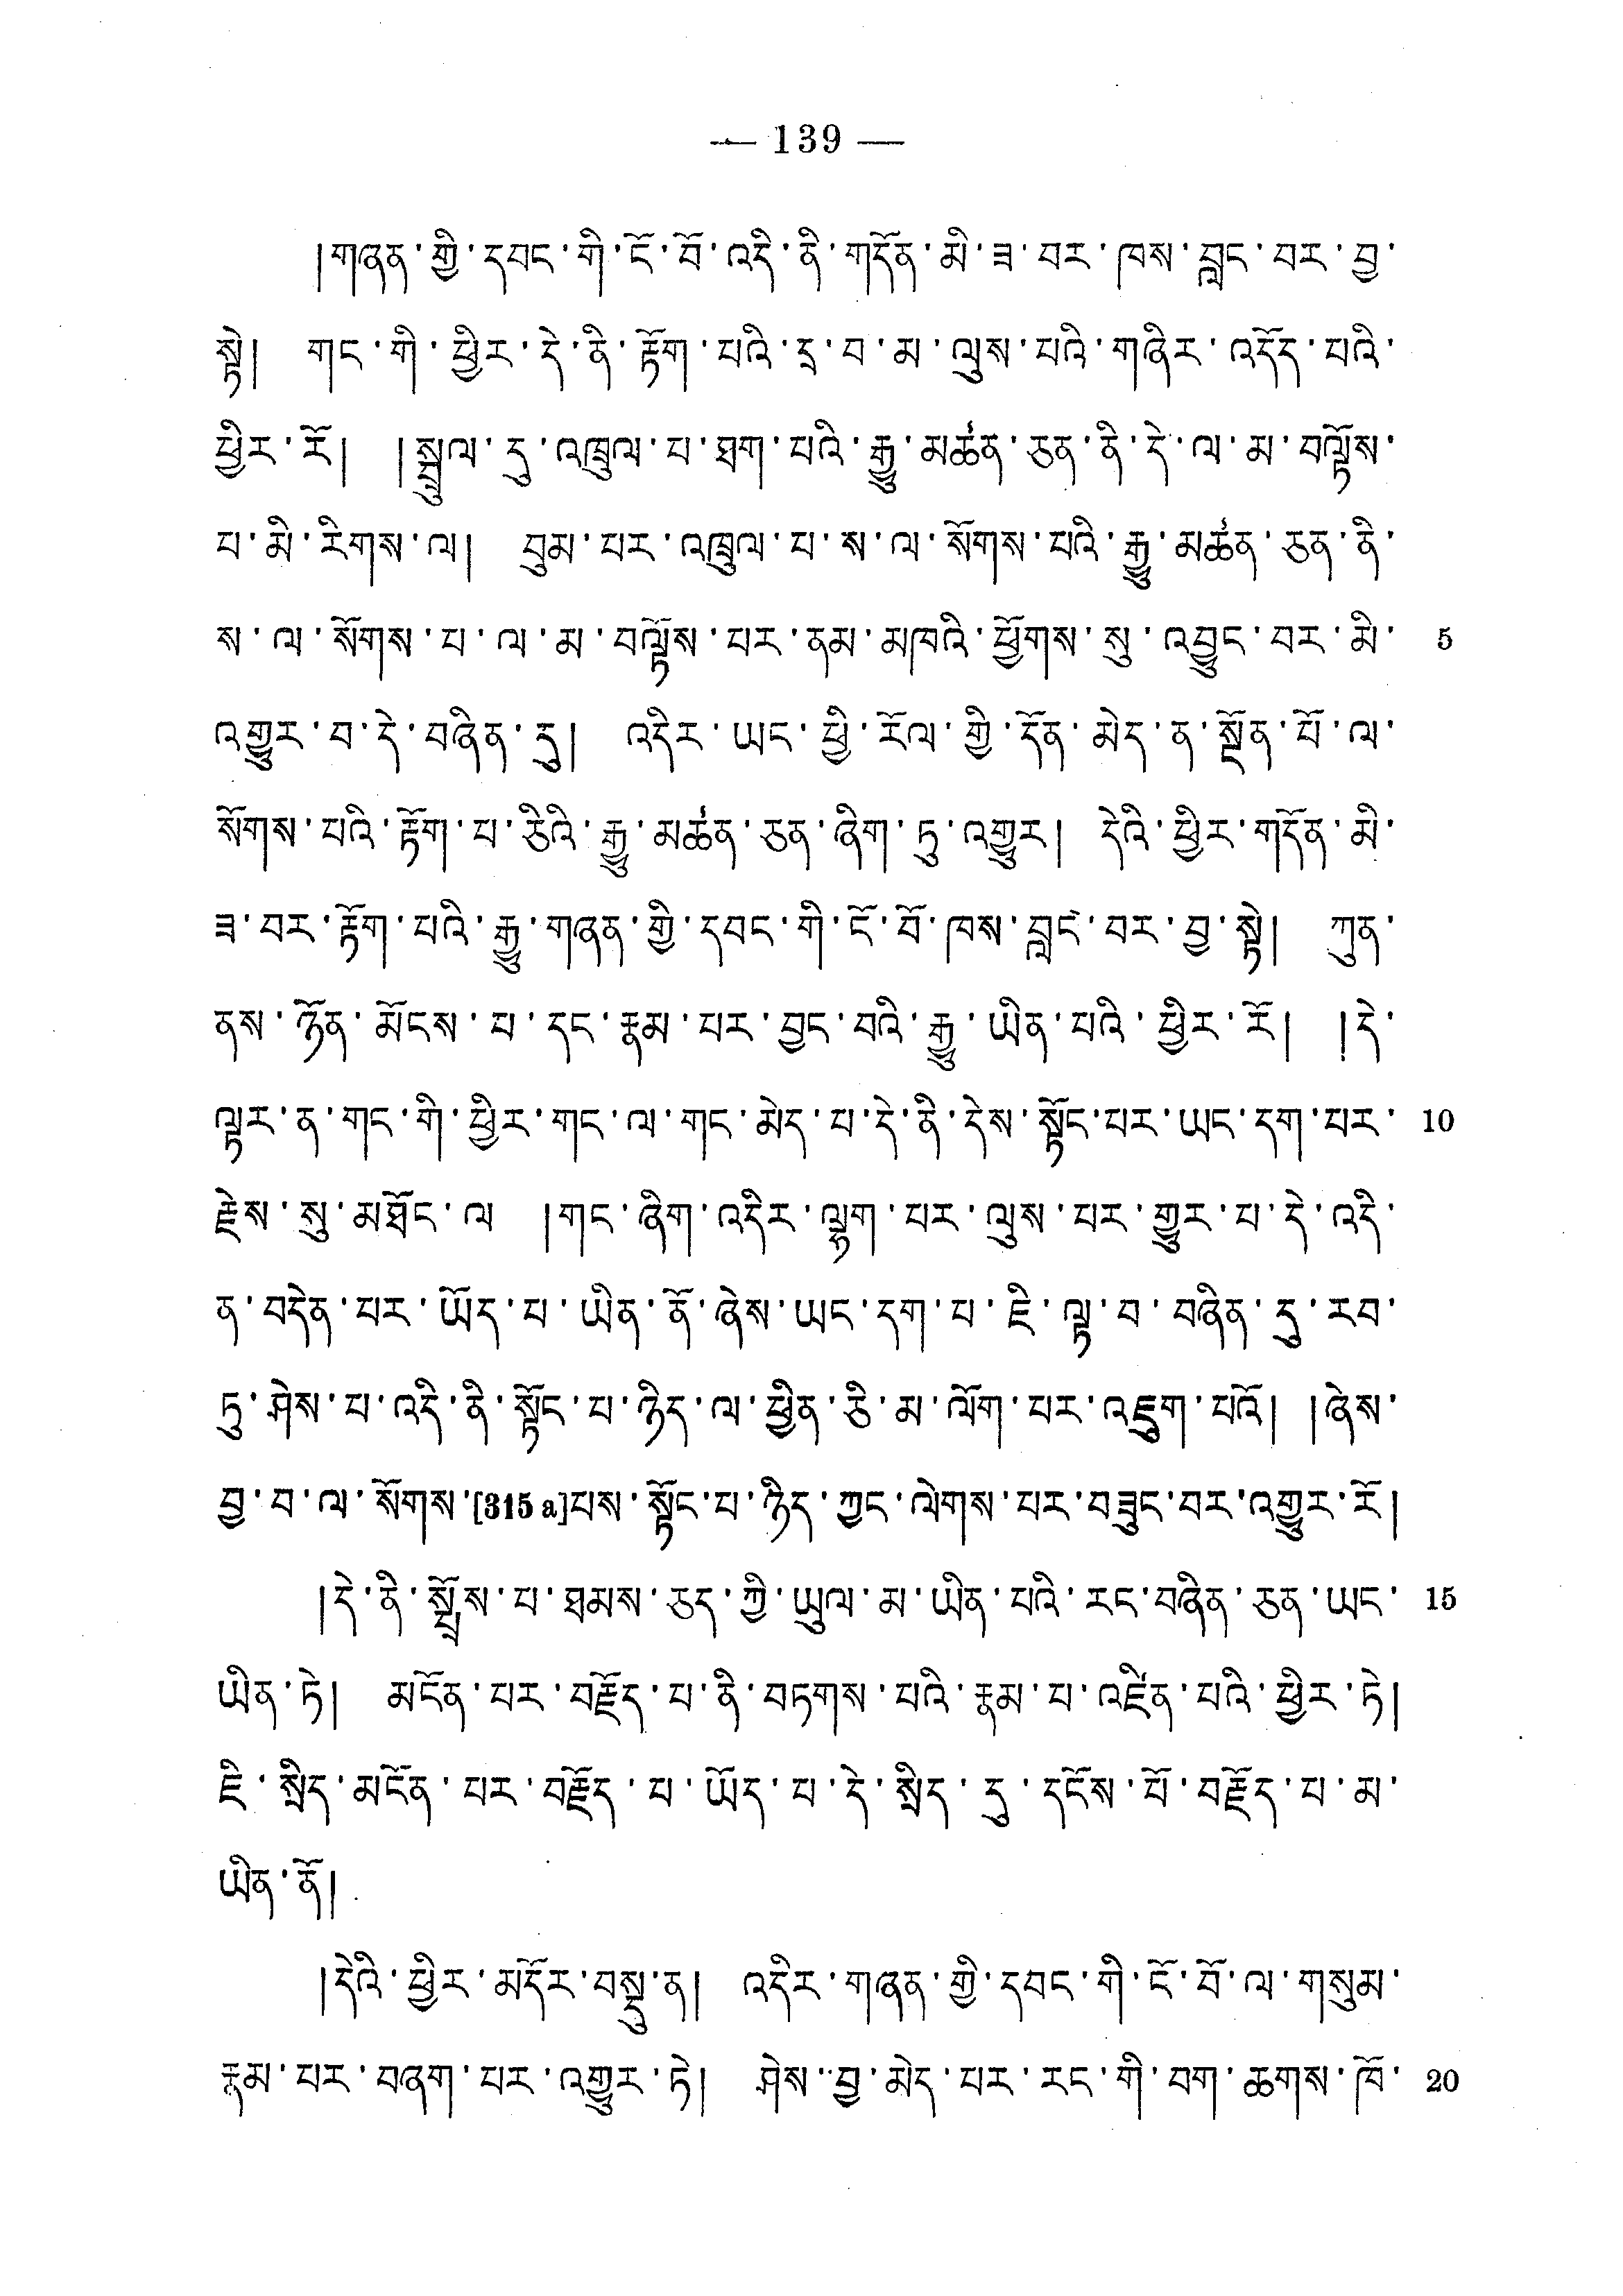 — 139 —
།གཞན་གྱི་དབང་གི་ངོ་བོ་འདི་ནི་གདོན་མི་ཟ་བར་ཁས་བླང་བར་བྱ་
སྟེ། གང་གི་ཕྱིར་དེ་ནི་རྟོག་པའི་དྲ་བ་མ་ལུས་པའི་གཞིར་འདོད་པའི་
ཕྱིར་རོ། །སྦྲུལ་དུ་འཁྲུལ་པ་ཐག་པའི་རྒྱུ་མཚན་ཅན་ནི་དེ་ལ་མ་བལྟོས་
པ་མི་རིགས་ལ། བུམ་པར་འཁྲུལ་པ་ས་ལ་སོགས་པའི་རྒྱུ་མཚན་ཅན་ནི་
ས་ལ་སོགས་པ་ལ་མ་བལྟོས་པར་ནམ་མཁའི་ཕྱོགས་སུ་འབྱུང་བར་མི་ 5
འགྱུར་བ་དེ་བཞིན་དུ། འདིར་ཡང་ཕྱི་རོལ་གྱི་དོན་མེད་ན་སྔོན་པོ་ལ་
སོགས་པའི་རྟོག་པ་ཅིའི་རྒྱུ་མཚན་ཅན་ཞིག་ཏུ་འགྱུར། དེའི་ཕྱིར་གདོན་མི་
ཟ་བར་རྟོག་པའི་རྒྱུ་གཞན་གྱི་དབང་གི་ངོ་བོ་ཁས་བླང་བར་བྱ་སྟེ། ཀུན་
ནས་ཉོན་མོངས་པ་དང་རྣམ་པར་བྱང་བའི་རྒྱུ་ཡིན་པའི་ཕྱིར་རོ། །དེ་
ལྟར་ན་གང་གི་ཕྱིར་གང་ལ་གང་མེད་པ་དེ་ནི་དེས་སྟོང་པར་ཡང་དག་པར་ 10
རྗེས་སུ་མཐོང་ལ །གང་ཞིག་འདིར་ལྷག་པར་ལུས་པར་གྱུར་པ་དེ་འདི་
ན་བདེན་པར་ཡོད་པ་ཡིན་ནོ་ཞེས་ཡང་དག་པ་ཇི་ལྟ་བ་བཞིན་དུ་རབ་
ཏུ་ཤེས་པ་འདི་ནི་སྟོང་པ་ཉིད་ལ་ཕྱིན་ཅི་མ་ལོག་པར་འཇུག་པའོ། །ཞེས་
བྱ་བ་ལ་སོགས་[315 a]པས་སྟོང་པ་ཉིད་ཀྱང་ལེགས་པར་བཟུང་བར་འགྱུར་རོ།
།དེ་ནི་སྤྲོས་པ་ཐམས་ཅད་ཀྱི་ཡུལ་མ་ཡིན་པའི་རང་བཞིན་ཅན་ཡང་ 15
ཡིན་ཏེ། མངོན་པར་བརྗོད་པ་ནི་བཏགས་པའི་རྣམ་པ་འཛིན་པའི་ཕྱིར་ཏེ།
ཇི་སྲིད་མངོན་པར་བརྗོད་པ་ཡོད་པ་དེ་སྲིད་དུ་དངོས་པོ་བརྗོད་པ་མ་
ཡིན་ནོ།
།དེའི་ཕྱིར་མདོར་བསྡུ་ན། འདིར་གཞན་གྱི་དབང་གི་ངོ་བོ་ལ་གསུམ་
རྣམ་པར་བཞག་པར་འགྱུར་ཏེ། ཤེས་བྱ་མེད་པར་རང་གི་བག་ཆགས་ཁོ་ 20